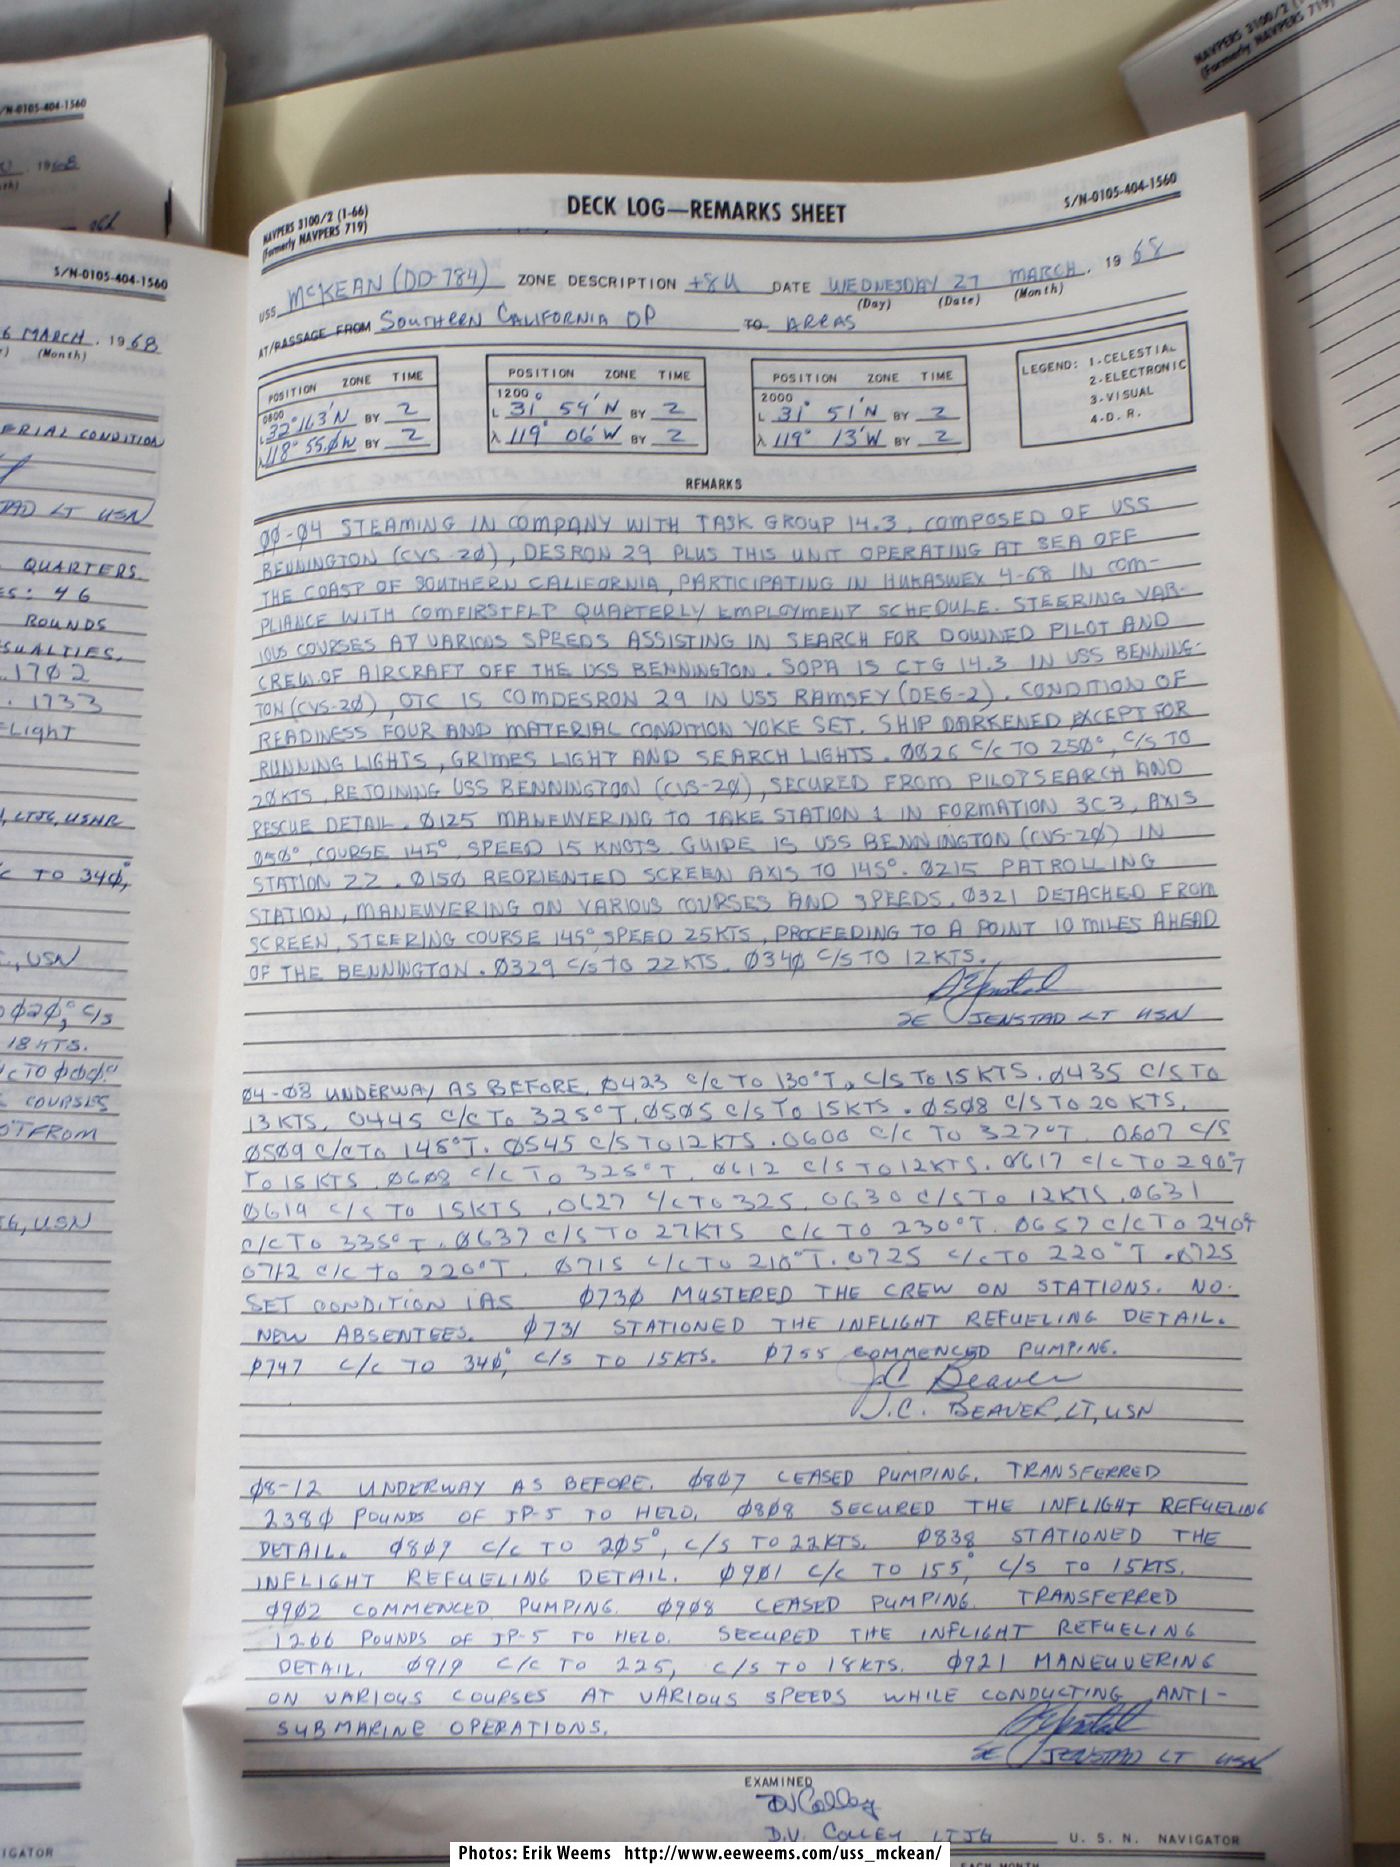 S/N-0105-404-1560
1968
NAVPERS 3100/2 (1-66)
(Formerly NAVPERS 719)
S/N-0105-404-1560
6 MARCH, 1968
(Month)
ERIAL CONDITION
LT USN
QUARTERS
ES: 46
ROUNDS
SUALTIES.
1702
1733
FLIGHT
, LTJG, USNR
C TO 34Ø°,
, USN
Ø2Ø°, C/S
18 KTS.
C TO ØØØ°
COURSES
OT FROM
TG, USN
IGATOR
NAVPERS 3100/2 (1-66)
(Formerly NAVPERS 719)
DECK LOG—REMARKS SHEET
S/N-0105-404-1560
USS McKEAN (DD-784) ZONE DESCRIPTION +8U DATE WEDNESDAY 27 MARCH, 1968
(Day) (Date) (Month)
AT/PASSAGE FROM SOUTHERN CALIFORNIA OP TO AREAS
POSITION ZONE TIME
0800
L 32° 43'N BY 2
λ 118° 55.Ø'W BY 2
POSITION ZONE TIME
1200
L 31° 54'N BY 2
λ 119° 06'W BY 2
POSITION ZONE TIME
2000
L 31° 51'N BY 2
λ 119° 13'W BY 2
LEGEND: 1-CELESTIAL
2-ELECTRONIC
3-VISUAL
4-D. R.
REMARKS
ØØ-Ø4 STEAMING IN COMPANY WITH TASK GROUP 14.3, COMPOSED OF USS
BENNINGTON (CVS-2Ø), DESRON 29 PLUS THIS UNIT OPERATING AT SEA OFF
THE COAST OF SOUTHERN CALIFORNIA, PARTICIPATING IN HUKASWEX 4-68 IN COM-
PLIANCE WITH COMFIRSTFLT QUARTERLY EMPLOYMENT SCHEDULE. STEERING VAR-
IOUS COURSES AT VARIOUS SPEEDS ASSISTING IN SEARCH FOR DOWNED PILOT AND
CREW OF AIRCRAFT OFF THE USS BENNINGTON. SOPA IS CTG 14.3 IN USS BENNING-
TON (CVS-2Ø), OTC IS COMDESRON 29 IN USS RAMSEY (DEG-2). CONDITION OF
READINESS FOUR AND MATERIAL CONDITION YOKE SET. SHIP DARKENED EXCEPT FOR
RUNNING LIGHTS, GRIMES LIGHT AND SEARCH LIGHTS. ØØ26 C/C TO 25Ø°, C/S TO
2ØKTS, REJOINING USS BENNINGTON (CVS-2Ø), SECURED FROM PILOT SEARCH AND
RESCUE DETAIL. Ø125 MANEUVERING TO TAKE STATION 1 IN FORMATION 3C3, AXIS
Ø5Ø°, COURSE 145° SPEED 15 KNOTS GUIDE IS USS BENNINGTON (CVS-2Ø) IN
STATION ZZ. Ø15Ø REORIENTED SCREEN AXIS TO 145°. Ø215 PATROLLING
STATION, MANEUVERING ON VARIOUS COURSES AND SPEEDS. Ø321 DETACHED FROM
SCREEN, STEERING COURSE 145° SPEED 25KTS, PROCEEDING TO A POINT 10 MILES AHEAD
OF THE BENNINGTON. Ø329 C/S TO 22KTS. Ø34Ø C/S TO 12KTS.
SE JENSTAD LT USN
Ø4-Ø8 UNDERWAY AS BEFORE. Ø423 C/C TO 130°T, C/S TO 15 KTS. Ø435 C/S TO
13 KTS. 0445 C/C TO 325°T. Ø5Ø5 C/S TO 15KTS. Ø5Ø8 C/S TO 20 KTS.
Ø5Ø9 C/C TO 145°T. Ø545 C/S TO 12 KTS. 0600 C/C TO 327°T. 0607 C/S
TO 15 KTS. Ø6Ø8 C/C TO 325°T. Ø612 C/S TO 12KTS. Ø617 C/C TO 290°T
Ø619 C/S TO 15KTS. 0627 C/C TO 325. 0630 C/S TO 12KTS. Ø631
C/C TO 335°T. Ø637 C/S TO 27KTS C/C TO 230°T. Ø657 C/C TO 240°T
0712 C/C TO 220°T. Ø715 C/C TO 210°T. 0725 C/C TO 220°T. 0725
SET CONDITION IAS Ø73Ø MUSTERED THE CREW ON STATIONS. NO
NEW ABSENTEES. Ø731 STATIONED THE INFLIGHT REFUELING DETAIL.
Ø747 C/C TO 34Ø°, C/S TO 15KTS. Ø755 COMMENCED PUMPING.
J.C. Beaver
J.C. BEAVER, LT, USN
Ø8-12 UNDERWAY AS BEFORE. Ø8Ø7 CEASED PUMPING. TRANSFERRED
238Ø POUNDS OF JP-5 TO HELO. Ø8Ø8 SECURED THE INFLIGHT REFUELING
DETAIL. Ø8Ø9 C/C TO 2Ø5°, C/S TO 22KTS. Ø838 STATIONED THE
INFLIGHT REFUELING DETAIL. Ø9Ø1 C/C TO 155°, C/S TO 15KTS.
Ø9Ø2 COMMENCED PUMPING. Ø9Ø8 CEASED PUMPING. TRANSFERRED
1266 POUNDS OF JP-5 TO HELO. SECURED THE INFLIGHT REFUELING
DETAIL. Ø919 C/C TO 225, C/S TO 18KTS. Ø921 MANEUVERING
ON VARIOUS COURSES AT VARIOUS SPEEDS WHILE CONDUCTING ANTI-
SUBMARINE OPERATIONS.
SE JENSTAD LT USN
EXAMINED
DV Colley
D.V. COLLEY, LTJG U. S. N. NAVIGATOR
EACH MONTH
Photos: Erik Weems http://www.eeweems.com/uss_mckean/